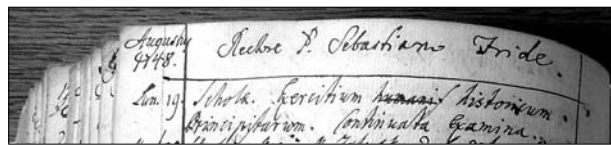 Augustus
1748.
Rectore P. Sebastiano Fride.
Lun. 19. Schola. Exercitium humanis historicum.
Principistarum. Continuata Examina.